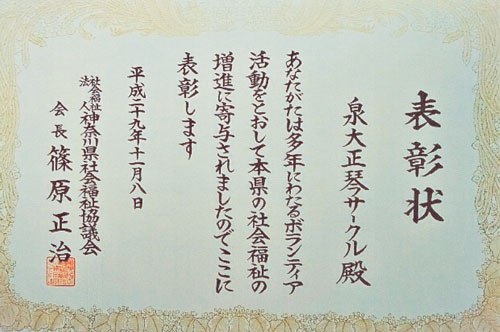 表彰状
泉大正琴サークル殿
あなたがたは多年にわたるボランティア
活動をとおして本県の社会福祉の
増進に寄与されましたのでここに
表彰します
平成二十九年十一月八日
社会福祉法人神奈川県社会福祉協議会
会長 篠原正治